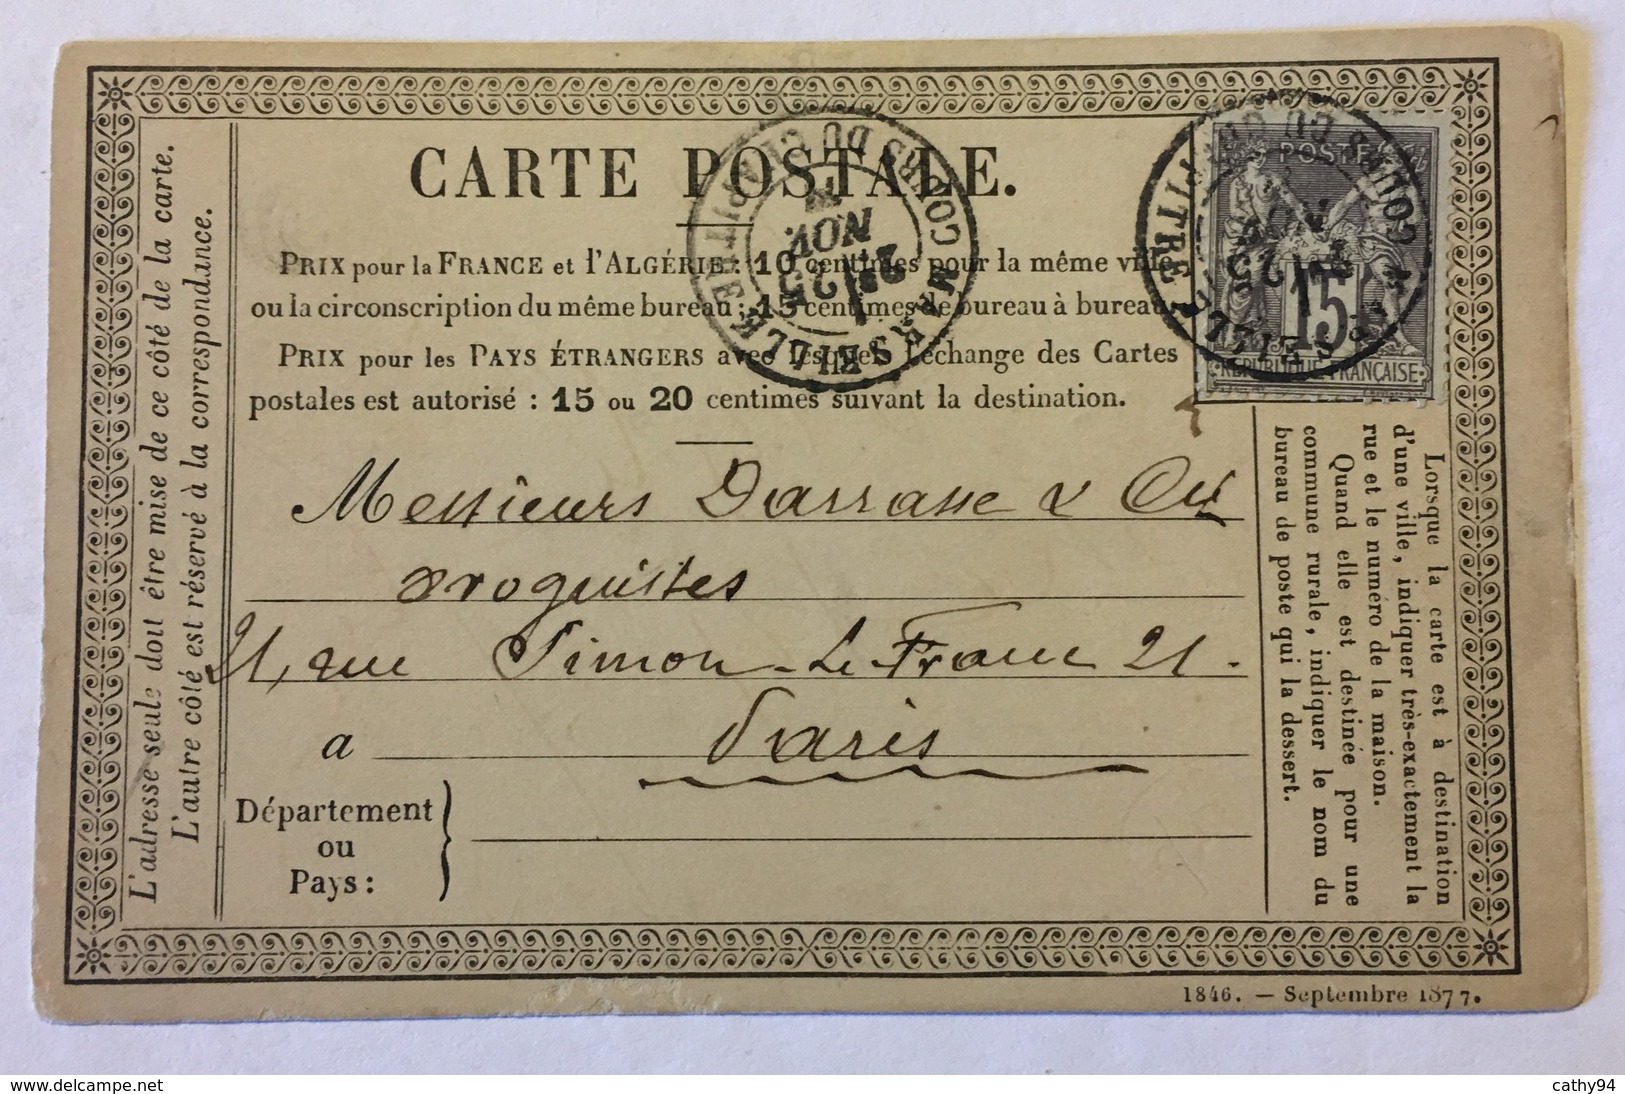 CARTE POSTALE.
PRIX pour la FRANCE et l'ALGÉRIE : 10 centimes pour la même ville
ou la circonscription du même bureau ; 15 centimes de bureau à bureau.
PRIX pour les PAYS ÉTRANGERS avec lesquels l'échange des Cartes
postales est autorisé : 15 ou 20 centimes suivant la destination.
Messieurs Darrasse & Cie
droguistes
21, rue Simon-Le-Franc 21.
a Paris
Département
ou
Pays :
L'adresse seule doit être mise de ce côté de la carte.
L'autre côté est réservé à la correspondance.
Lorsque la carte est à destination
d'une ville, indiquer très-exactement la
rue et le numéro de la maison.
Quand elle est destinée pour une
commune rurale, indiquer le nom du
bureau de poste qui la dessert.
MARSEILLE COURS DU CHAPITRE
25
NOV.
MARSEILLE COURS DU CHAPITRE
25
POSTE
15
REPUBLIQUE FRANÇAISE
1846. — Septembre 1877.
www.delcampe.net
cathy94